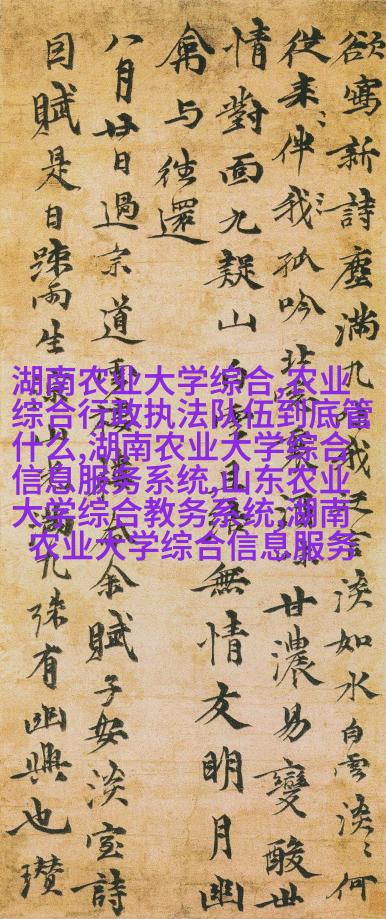 欲寫新詩塵滿几 我 淡如水白雲淡〻何
從来〻伴我〻孤吟 甘濃易變酸世
情對面九疑山 且 無情友明月幽
禽与往還
八月廿日過宗道 余賦子安淡室詩
因賦是日踈雨生 几殊有幽興也瓚
湖南农业大学综合,农业
综合行政执法队伍到底管
什么,湖南农业大学综合
信息服务系统,山东农业
大学综合教务系统,湖南
农业大学综合信息服务